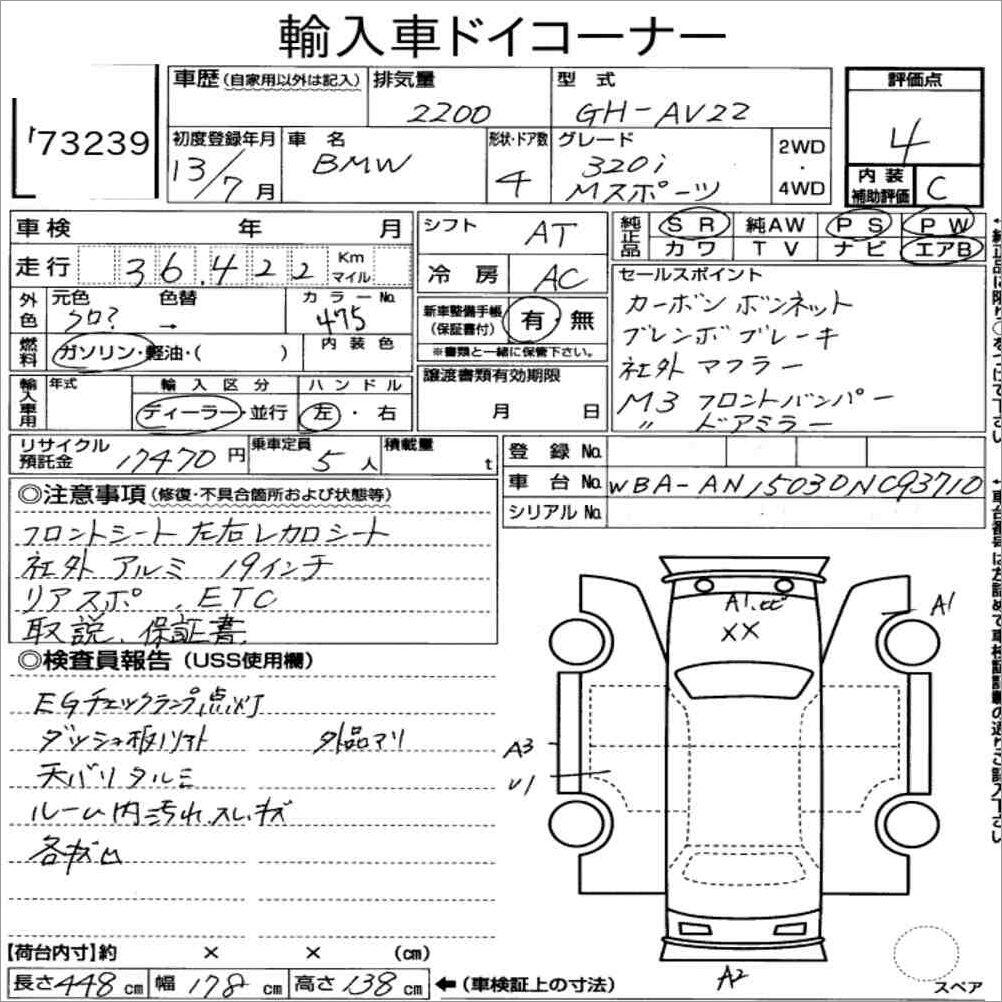 輸入車ドイコーナー
'73239
車歴(自家用以外は記入) 排気量 2200 型式 GH-AV22 評価点 4
初度登録年月 13/7月 車名 BMW 形状・ドア数 4 グレード 320i Mスポーツ 2WD・4WD 内装補助評価 C
車検 年 月 シフト AT 純正品 SR 純AW PS PW
カワ TV ナビ エアB
走行 36,422 Km マイル 冷房 AC
外色 元色 クロ? 色替 → カラーNo. 475
新車整備手帳(保証書付) 有 無
※書類と一緒に保管下さい。
燃料 ガソリン・軽油・( ) 内装色
セールスポイント
カーボン ボンネット
ブレンボ ブレーキ
社外 マフラー
M3 フロントバンパー
〃 ドアミラー
輸入車用 年式 輸入区分 ディーラー・並行 ハンドル 左・右
譲渡書類有効期限 月 日
リサイクル預託金 17470円 乗車定員 5人 積載量 t
登録No.
車台No. WBA-AN15030NC93710
シリアルNo.
◎注意事項(修復・不具合箇所および状態等)
フロントシート 左右レカロシート
社外 アルミ 19インチ
リアスポ、ETC
取説、保証書
◎検査員報告(USS使用欄)
EGチェックランプ点灯
ダッシュ板ソリ 外品アリ
天バリタルミ
ルーム内汚れ、スレ、キズ
各キズ凹
A1.ヒビ
XX
A1
A3
U1
A2
スペア
【荷台内寸】約 × × (cm)
長さ448cm 幅178cm 高さ138cm ←(車検証上の寸法)